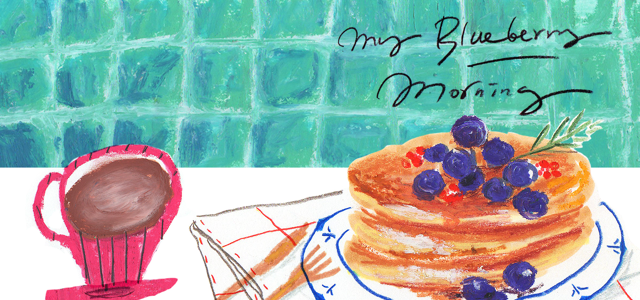 My Blueberry
Morning